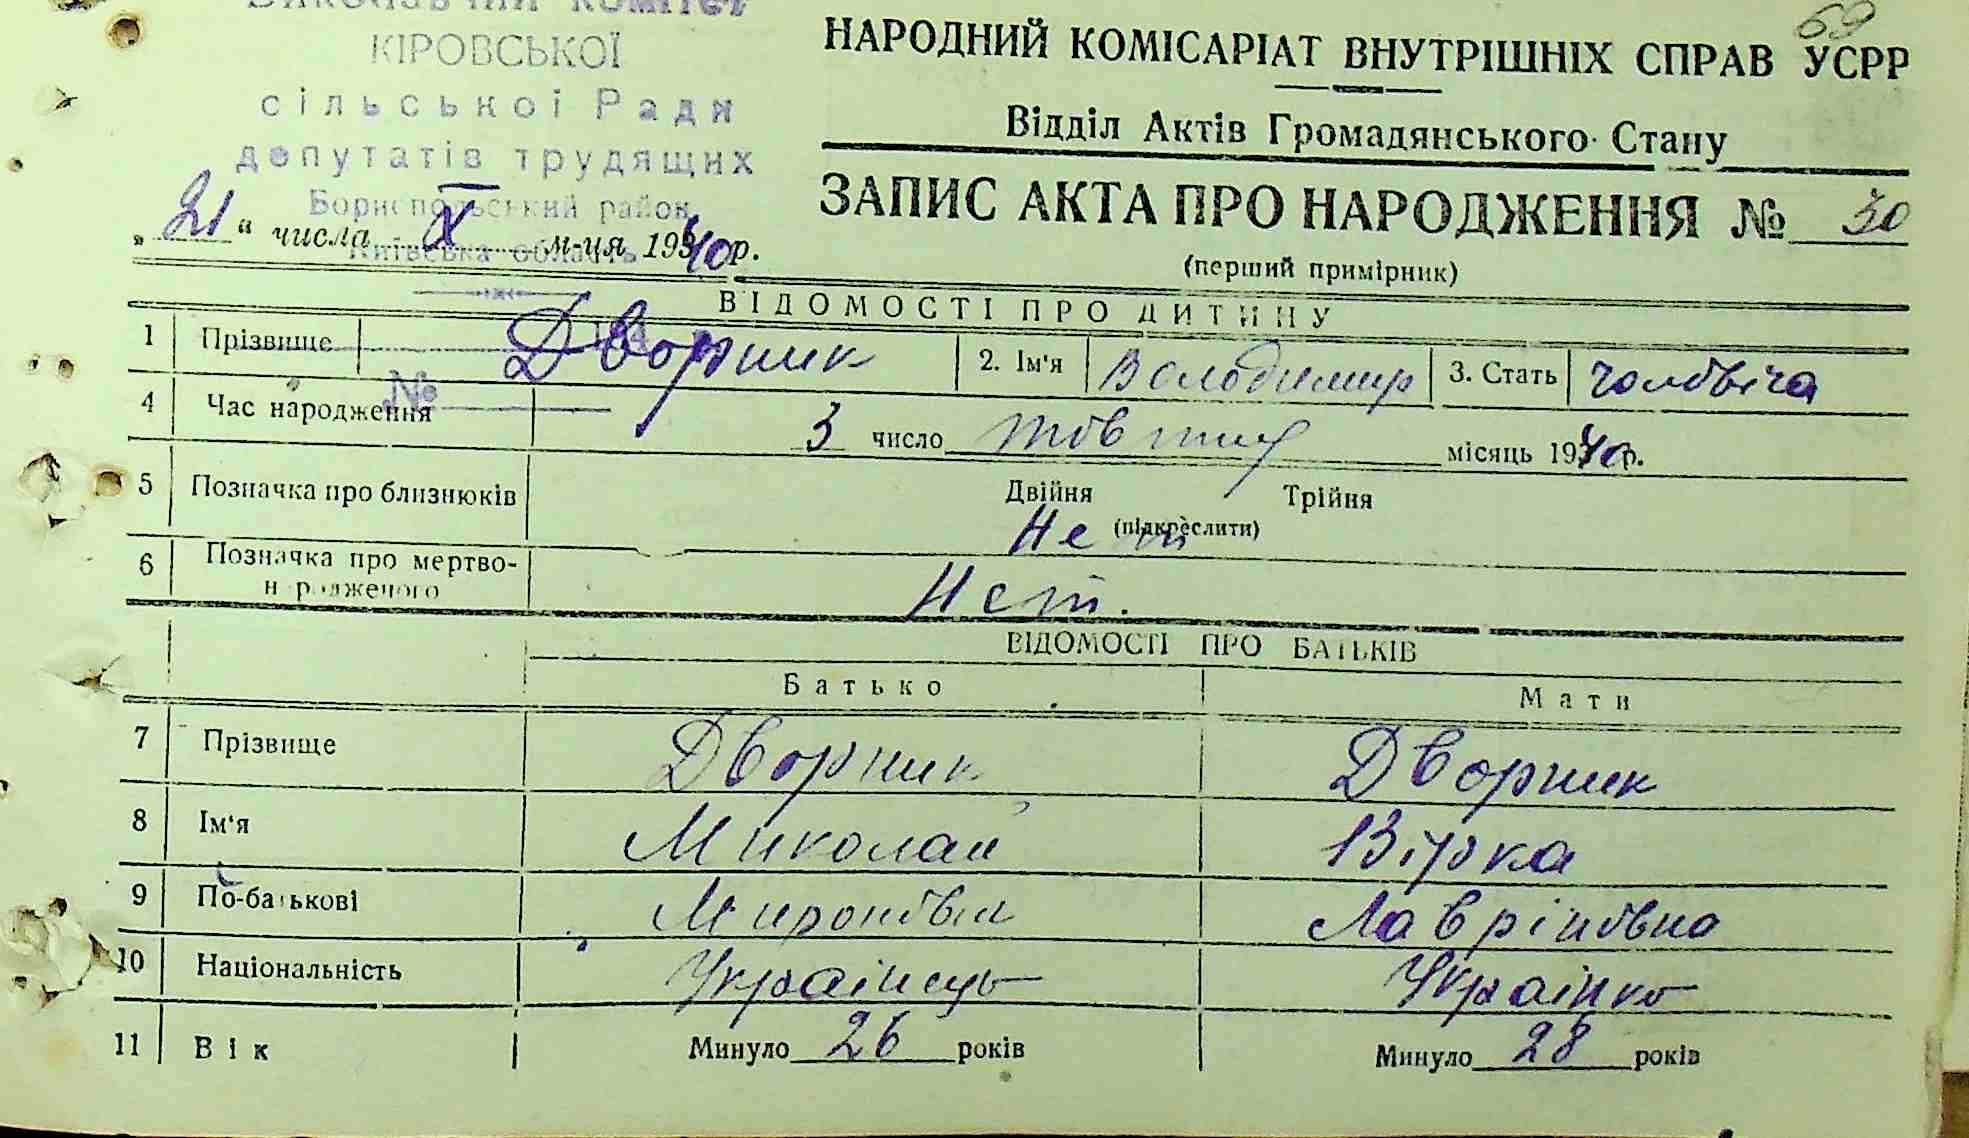 Виконавчий комітет
КІРОВСЬКОЇ
сільської Ради
депутатів трудящих
Бориспольський район
Київська область
№
69
НАРОДНИЙ КОМІСАРІАТ ВНУТРІШНІХ СПРАВ УСРР
Відділ Актів Громадянського Стану
ЗАПИС АКТА ПРО НАРОДЖЕННЯ № 30
(перший примірник)
„21“ числа X м-ця 1940р.
ВІДОМОСТІ ПРО ДИТИНУ
1 Прізвище Дворник 2. Ім'я Володимир 3. Стать чоловіча
4 Час народження 3 число жовтня місяць 1940р.
5 Позначка про близнюків Двійня Трійня
(підкреслити)
Нет
6 Позначка про мертво-
народженого Нет.
ВІДОМОСТІ ПРО БАТЬКІВ
Батько Мати
7 Прізвище Дворник Дворник
8 Ім'я Миколай Вірка
9 По-батькові Миронович Лавріновна
10 Національність Українець Українка
11 Вік Минуло 26 років Минуло 28 років